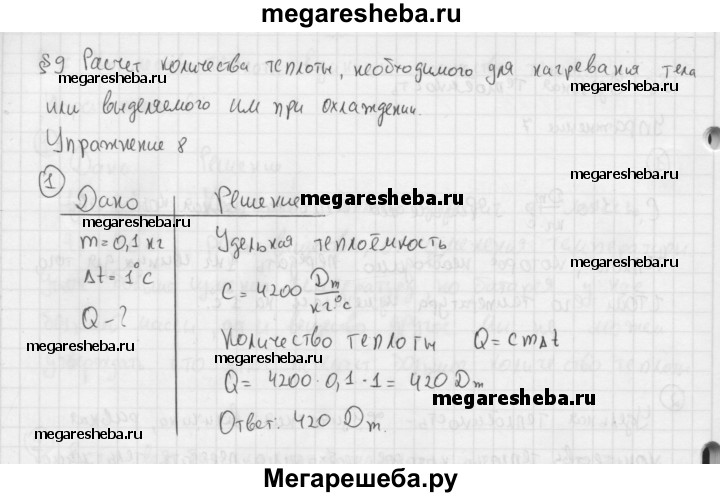 megaresheba.ru
§9 Расчет количества теплоты, необходимого для нагревания тела
megaresheba.ru
или выделяемого им при охлаждении.
megaresheba.ru
Упражнение 8
megaresheba.ru
1
Дано Решение
megaresheba.ru
megaresheba.ru
m = 0,1 кг Удельная теплоёмкость
megaresheba.ru
Δt = 1°C
C = 4200 Дж/кг°C
megaresheba.ru
Q - ?
Количество теплоты Q = cmΔt
megaresheba.ru
Q = 4200 · 0,1 · 1 = 420 Дж
megaresheba.ru
Ответ: 420 Дж.
megaresheba.ru
megaresheba.ru
Мегарешеба.ру